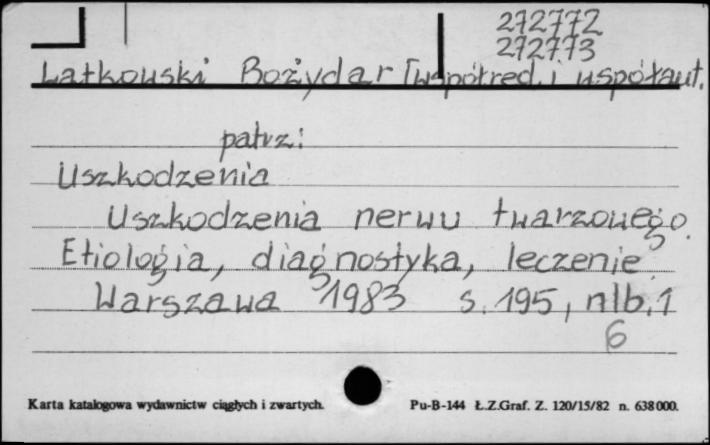 272772
272773
Latkowski Bożydar [współred. i współaut.
patrz:
Uszkodzenia
Uszkodzenia nerwu twarzowego.
Etiologia, diagnostyka, leczenie.
Warszawa 1983 s. 195, nlb. 1
6
Karta katalogowa wydawnictw ciągłych i zwartych.
Pu-B-144 Ł.Z.Graf. Z. 120/15/82 n. 638000.